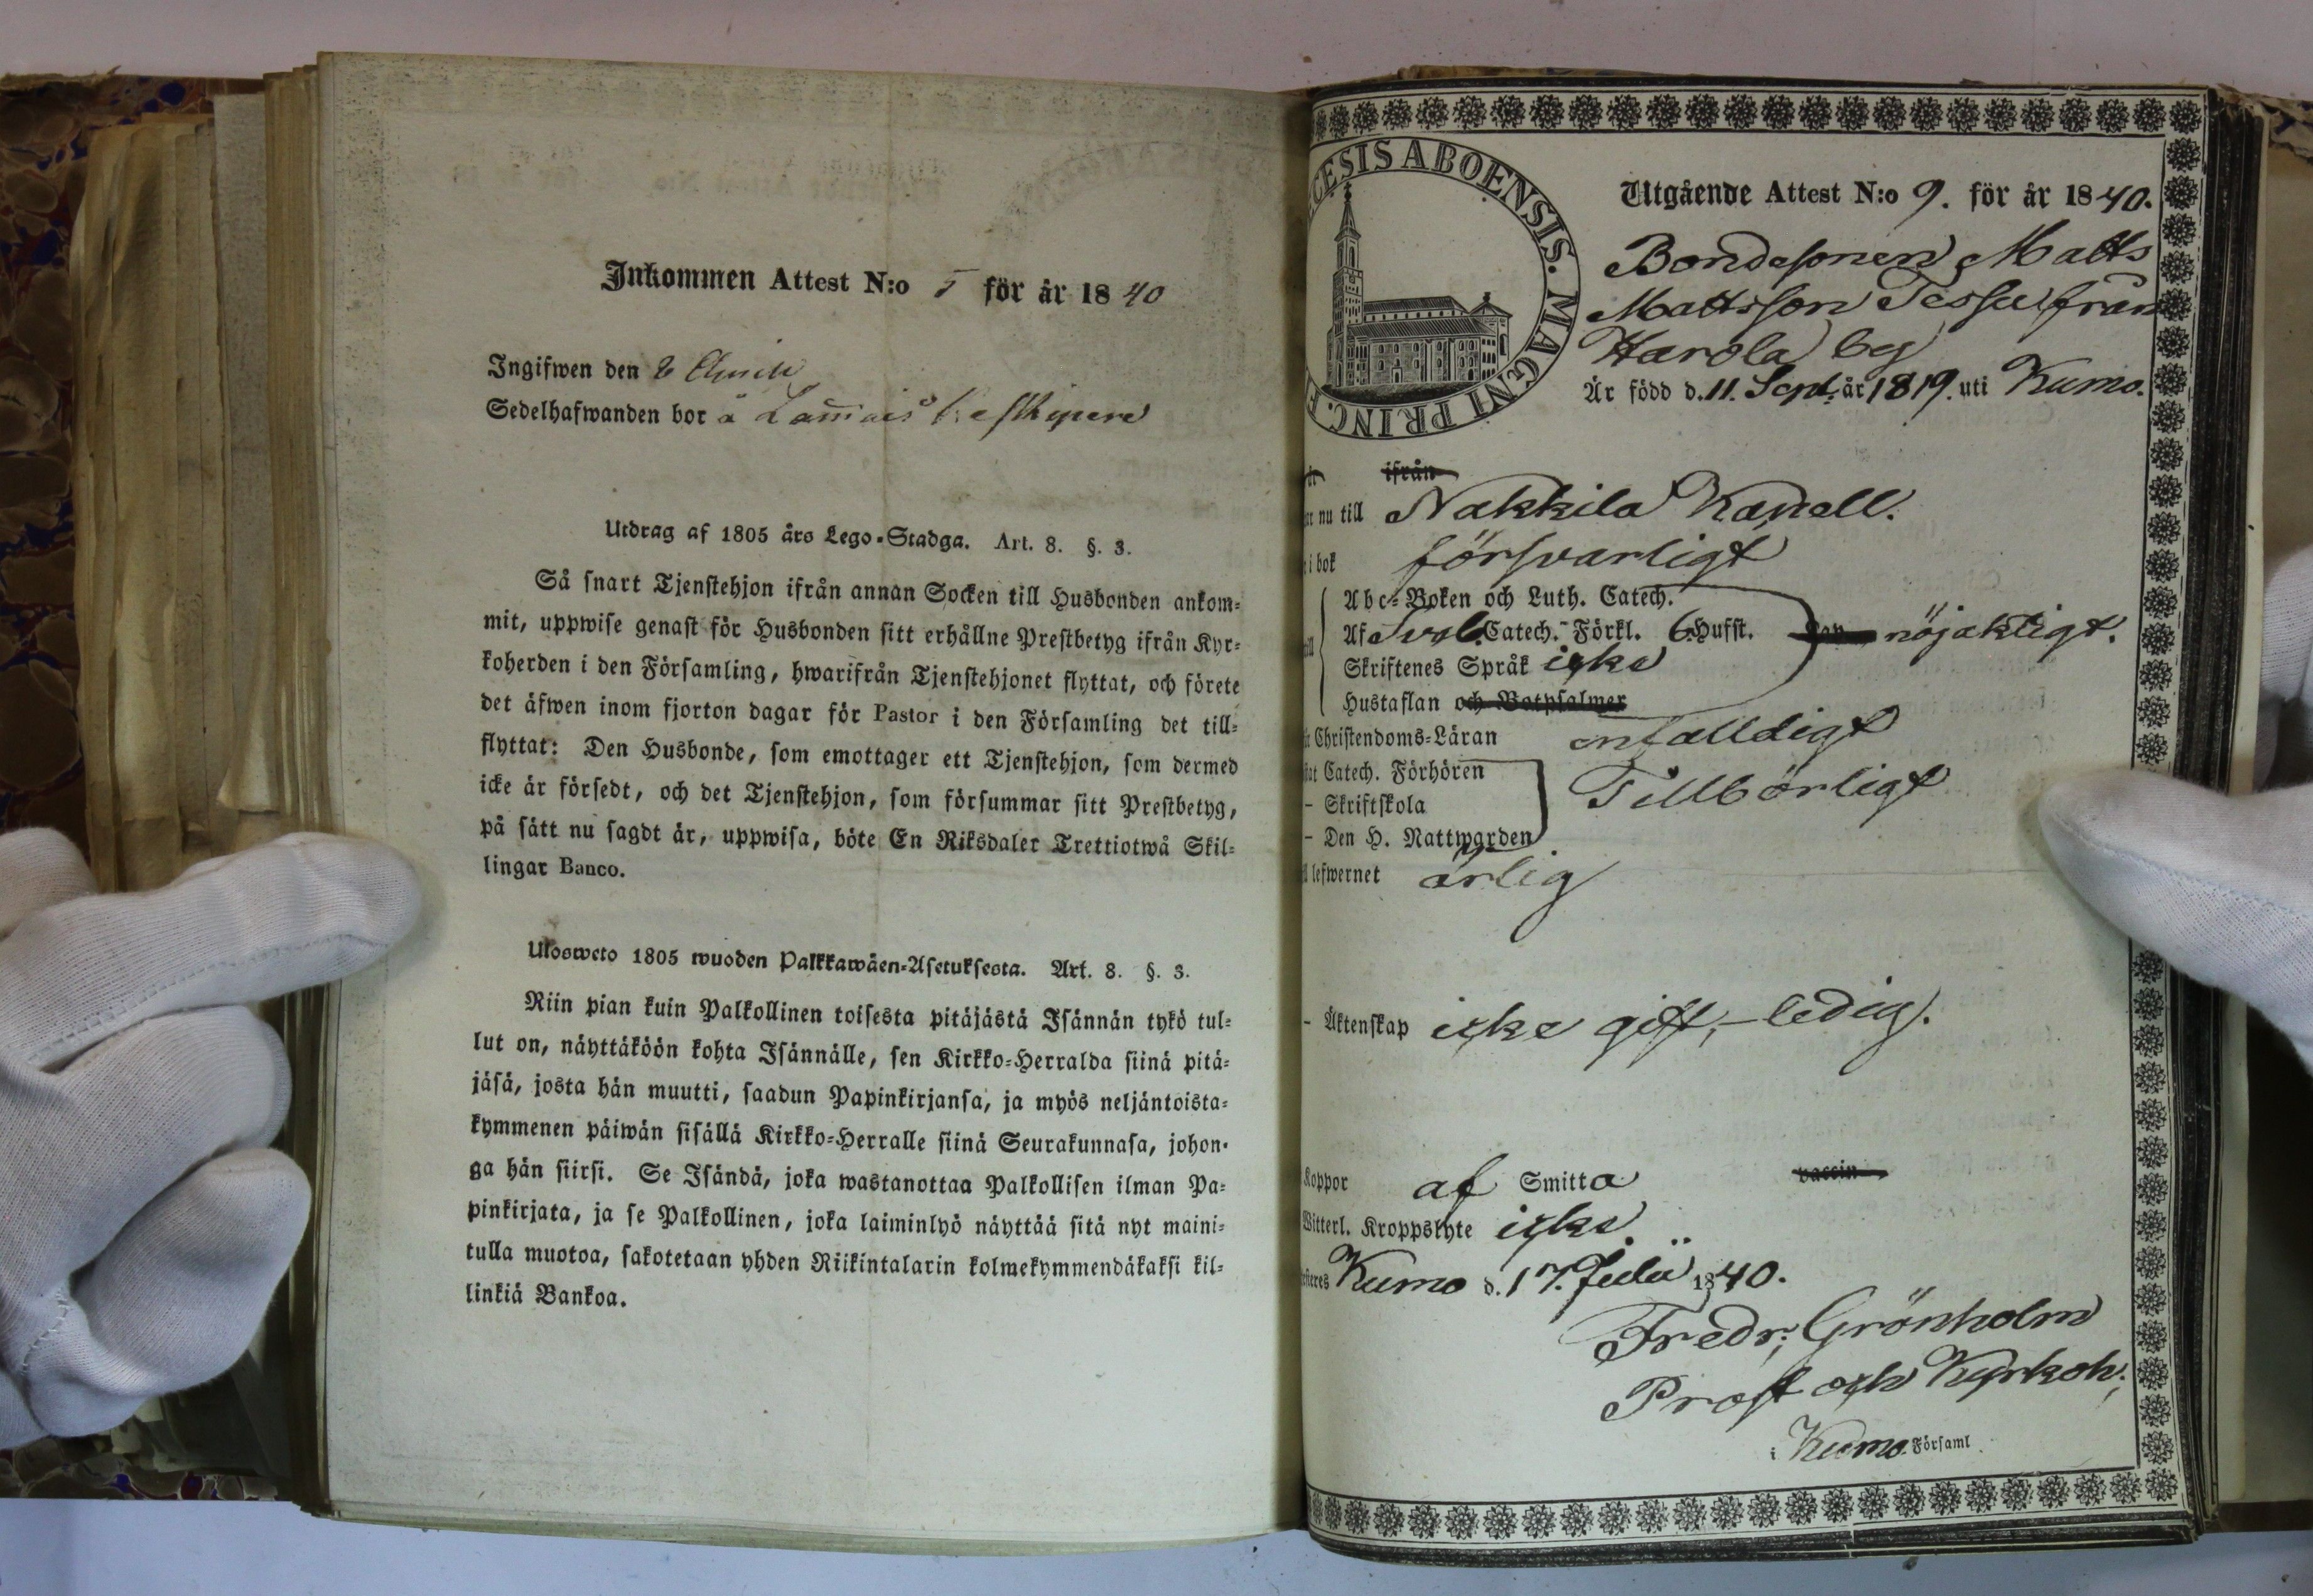 Inkommen Attest N:o 5 för år 1840
Ingifwen den
Sedelhafwanden bor å
Utdrag af 1805 års Lego-Stadga. Art. 8. §. 3.
Så snart Tjenstehjon ifrån annan Socken till Husbonden ankom-
mit, uppwise genast för Husbonden sitt erhållne Prestbetyg ifrån Kyr-
koherden i den Församling, hwarifrån Tjenstehjonet flyttat, och förete
det äfwen inom fjorton dagar för Pastor i den Församling det till-
flyttat: Den Husbonde, som emottager ett Tjenstehjon, som dermed
icke är försedt, och det Tjenstehjon, som försummar sitt Prestbetyg,
på sätt nu sagdt är, uppwisa, böte En Riksdaler Trettiotwå Skil-
lingar Banco.
Ulosweto 1805 wuoden Palkkawäen-Asetuksesta. Art. 8. §. 3.
Niin pian kuin Palkollinen toisesta pitäjästä Isännän tykö tul-
lut on, näyttäköön kohta Isännälle, sen Kirkko-Herralda siinä pitä-
jäsä, josta hän muutti, saadun Papinkirjansa, ja myös neljäntoista-
kymmenen päiwän sisällä Kirkko-Herralle siinä Seurakunnasa, johon-
ga hän siirsi. Se Isändä, joka wastanottaa Palkollisen ilman Pa-
pinkirjata, ja se Palkollinen, joka laiminlyö näyttää sitä nyt maini-
tulla muotoa, sakotetaan yhden Riikintalarin kolmekymmendäkaksi kil-
linkiä Bankoa.
CESIS ABOENSIS. MAGNI PRINC. F
Utgående Attest N:o 9. för år 1840.
Bondesonen Matts
Mattsson från
Harola by
Är född d. 11. Sept. år 1819. uti Kumo.
ifrån
nu till Nakkila Kapell.
i bok försvarligt
Abc-Boken och Luth. Catech.
Af Sveb. Catech. Förkl. 6 Hufst. nöjaktigt.
Skriftenes Språk icke
Hustaflan och Botpsalmer
Christendoms-Läran enfalldigt
Catech. Förhören
- Skriftskola Tillbörligt
- Den H. Nattwarden
lefwernet ärlig
- Äktenskap icke gift, - ledig.
Koppor af Smitta vaccin
Witterl. Kroppslyte icke.
Kumo d. 17. Julii 1840.
Fredr: Grönholm
Prost och Kyrkoh:
i Kumo Församl.